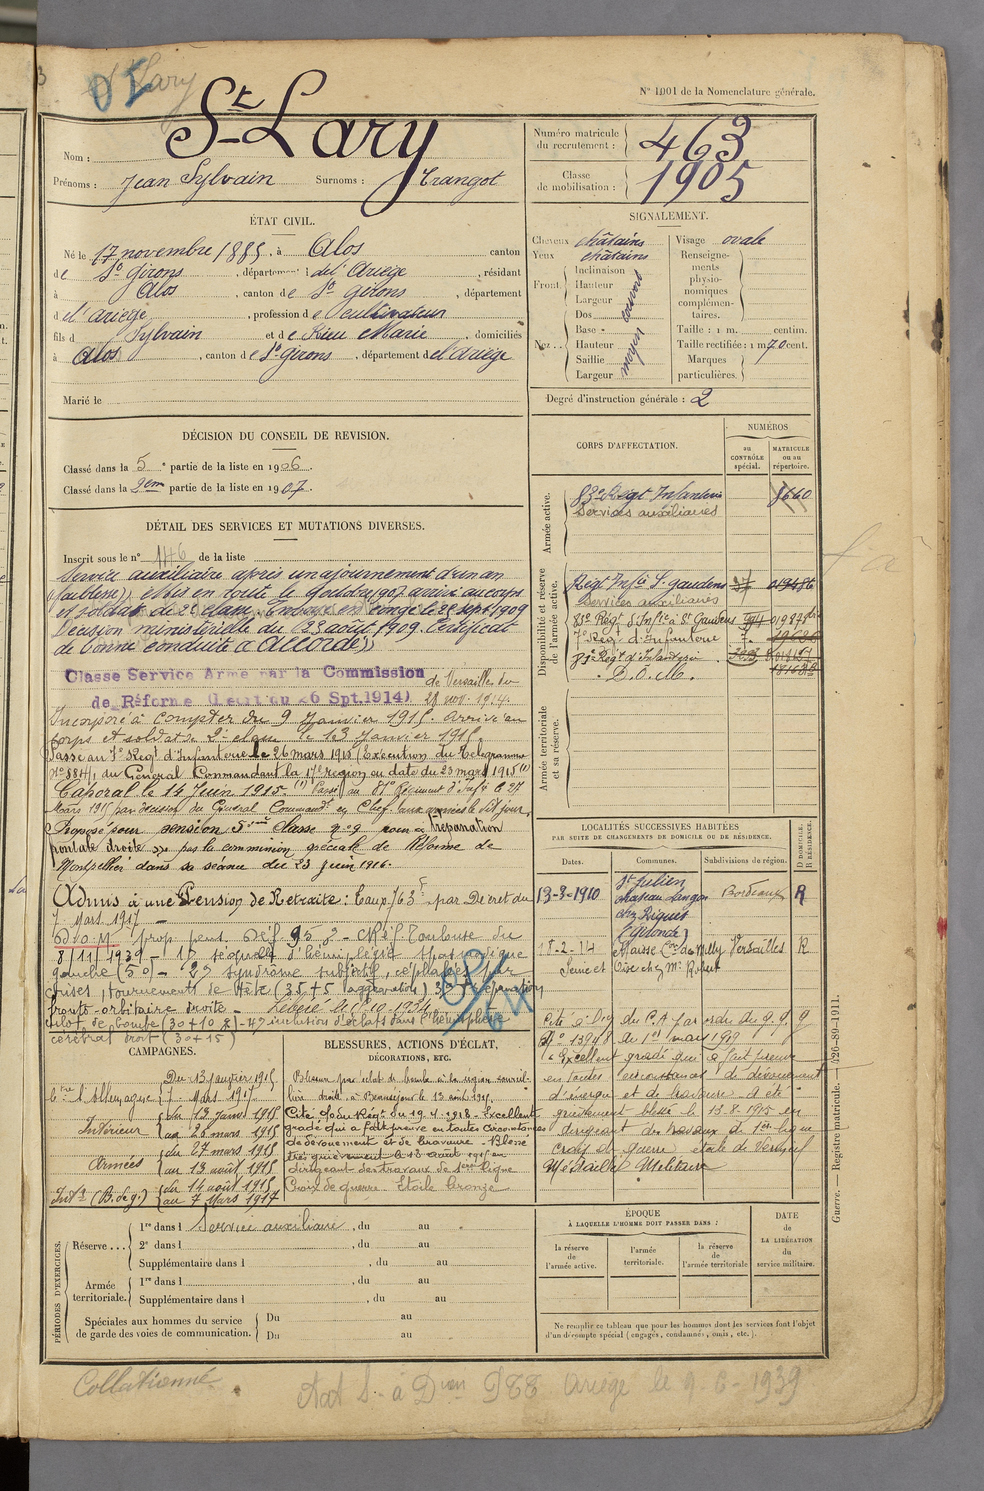 St Lary
N° 1001 de la Nomenclature générale.
St Lary
Nom :
Prénoms : Jean Sylvain Surnoms : Trangot
Numéro matricule du recrutement : 463
Classe de mobilisation : 1905
ÉTAT CIVIL.
Né le 17 novembre 1885, à Alos canton
de St Girons, département de l'Ariège, résidant
à Alos, canton de St Girons, département
d el'ariège, profession de cultivateur
fils d Sylvain et de Rieu Marie, domiciliés
à Alos, canton de St Girons, département de l'ariège
Marié le
SIGNALEMENT.
Cheveux châtains
Yeux châtains
Front
Inclinaison
Hauteur
Largeur
couvert
Nez
Dos
Base
Hauteur
Saillie
Largeur
moyen
Visage ovale
Renseignements physionomiques complémentaires.
Taille : 1 m. centim.
Taille rectifiée : 1 m 70 cent.
Marques particulières.
Degré d'instruction générale : 2
DÉCISION DU CONSEIL DE REVISION.
Classé dans la 5e partie de la liste en 1906.
Classé dans la 2em partie de la liste en 1907.
DÉTAIL DES SERVICES ET MUTATIONS DIVERSES.
Inscrit sous le n° 146 de la liste
Service auxiliaire après un ajournement d'un an
(faiblesse). Mis en route le 9 octobre 1907 arrivé au corps
et soldat de 2e classe. Envoyé en congé le 25 sept 1909
(décision ministérielle du 23 août 1909. Certificat
de bonne conduite « Accordé »
Classe Service Armé par la Commission
de Réforme (Decret du 26 Spt. 1914) de Versailles du
28 nov. 1914.
Incorporé à compter du 9 Janvier 1915. Arrivé au
corps et soldat de 2e classe le 13 Janvier 1915.
Passé au 7e Régt d'Infanterie le 26 mars 1915 (Exécution du Télégramme
du Général Commandant la 17e région en date du 23 mars 1915 (1)
Caporal le 14 Juin 1915. (1) Passé au 81e Régiment d'Infie le 27
Mars 1915 par décision du Général Commandt en Chef
Proposé pour pension 5eme classe pour « trépanation
frontale droite » par la commission spéciale de Réforme de
Montpellier dans sa séance du 23 juin 1916.
Admis à une Pension de Retraite : Taux 763 f par Décret du
7 Mars 1917
D.O.M prop pens. déf 95 % - C.Réf Toulouse du
8/11/1939 - 1° séquelles d'hémiplégie spasmodique
gauche (50) - 2° syndrome subjectif, céphalées par
crises, tournements de tête (35+5 aggravation) 3° trépanation
fronto-orbitaire droite
éclat de bombe (30+10) - 4° inclusions d'éclats dans l'hémisphère
cérébral droit (30+15)
Libéré le 10.10.1934
CORPS D'AFFECTATION.
NUMÉROS
au CONTRÔLE spécial.
MATRICULE ou au répertoire.
Armée active.
83e Régt Infanterie 8660
Services auxiliaires
Disponibilité et réserve de l'armée active.
Régt Infie St gaudens
Services auxiliaires
83e Rég d'Inf ie à St Gaudens
7e Rég d'Infanterie
81e Régt d'Infanterie
D.O.M.
Armée territoriale et sa réserve.
LOCALITÉS SUCCESSIVES HABITÉES
PAR SUITE DE CHANGEMENTS DE DOMICILE OU DE RÉSIDENCE.
Dates.
Communes.
Subdivisions de région.
D DOMICILE. R RÉSIDENCE.
13-3-1910 St Julien Bordeaux R
chateau Langon
chez Riquet
(Gironde)
18-2-14 Versailles R
Seine et Oise chez Mr Robert
OP/64
Cité à l'ordre du C.A par ordre du q.g
N° 13948 de 1er mars 1919
« Excellent gradé qui a fait preuve
en toutes circonstances de dévouement
d'énergie et de bravoure. A été
grièvement blessé le 13.8.1915 en
dirigeant des travaux de 1ère ligne
Croix de guerre étoile de Vermeil
Médaille Militaire
CAMPAGNES.
Du 13 janvier 1915
Ctre l'Allemagne 7 Mars 1917
Intérieur du 13 janv 1915
au 26 mars 1915
Armées du 27 mars 1915
au 13 août 1915
Intr (B. de g.) du 14 août 1915
au 7 Mars 1917
BLESSURES, ACTIONS D'ÉCLAT, DÉCORATIONS, ETC.
Blessure par éclat de bombe à la région sourcilière
droite à Beauséjour le 13 août 1915.
Cité à l'ordre Régt du 19.4.1918 - Excellent
gradé qui a fait preuve en toutes circonstances
de dévouement et de bravoure - Blessé
très grièvement le 13 août 1915 en
dirigeant des travaux de 1ère ligne
Croix de guerre Etoile bronze
PÉRIODES D'EXERCICES.
Réserve...
1re dans l Service auxiliaire, du au
2e dans l , du au
Supplémentaire dans l , du au
Armée territoriale.
1re dans l , du au
Supplémentaire dans l , du au
Spéciales aux hommes du service de garde des voies de communication.
Du au
Du au
ÉPOQUE
À LAQUELLE L'HOMME DOIT PASSER DANS :
la réserve de l'armée active.
l'armée territoriale.
la réserve de l'armée territoriale
DATE de LA LIBÉRATION du service militaire.
Ne remplir ce tableau que pour les hommes dont les services font l'objet
d'un décompte spécial (engagés, condamnés, omis, etc.).
Guerre. — Registre matricule. — 426-89-1911.
Collationné
Ariège le 9-6-1939